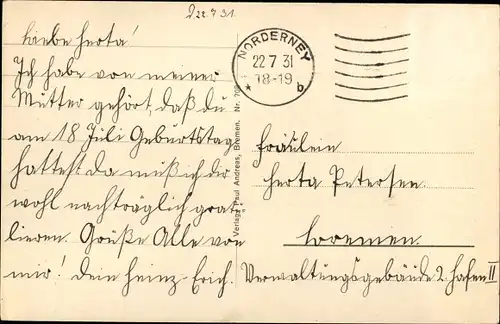 22.7.31.
Liebe Herta!
Ich habe von meiner
Mutter gehört, daß du
am 18 Juli Geburtstag
hattest da muß ich dir
wohl nachträglich gratu-
lieren. Grüße Alle von
mir! Dein Heinz-Erich.
Verlag: Paul Andreas, Bremen. Nr.
NORDERNEY
22 7 31
18-19
* b
Fräulein
Herta Petersen.
Bremen.
Verwaltungsgebäude 2. Hafen II